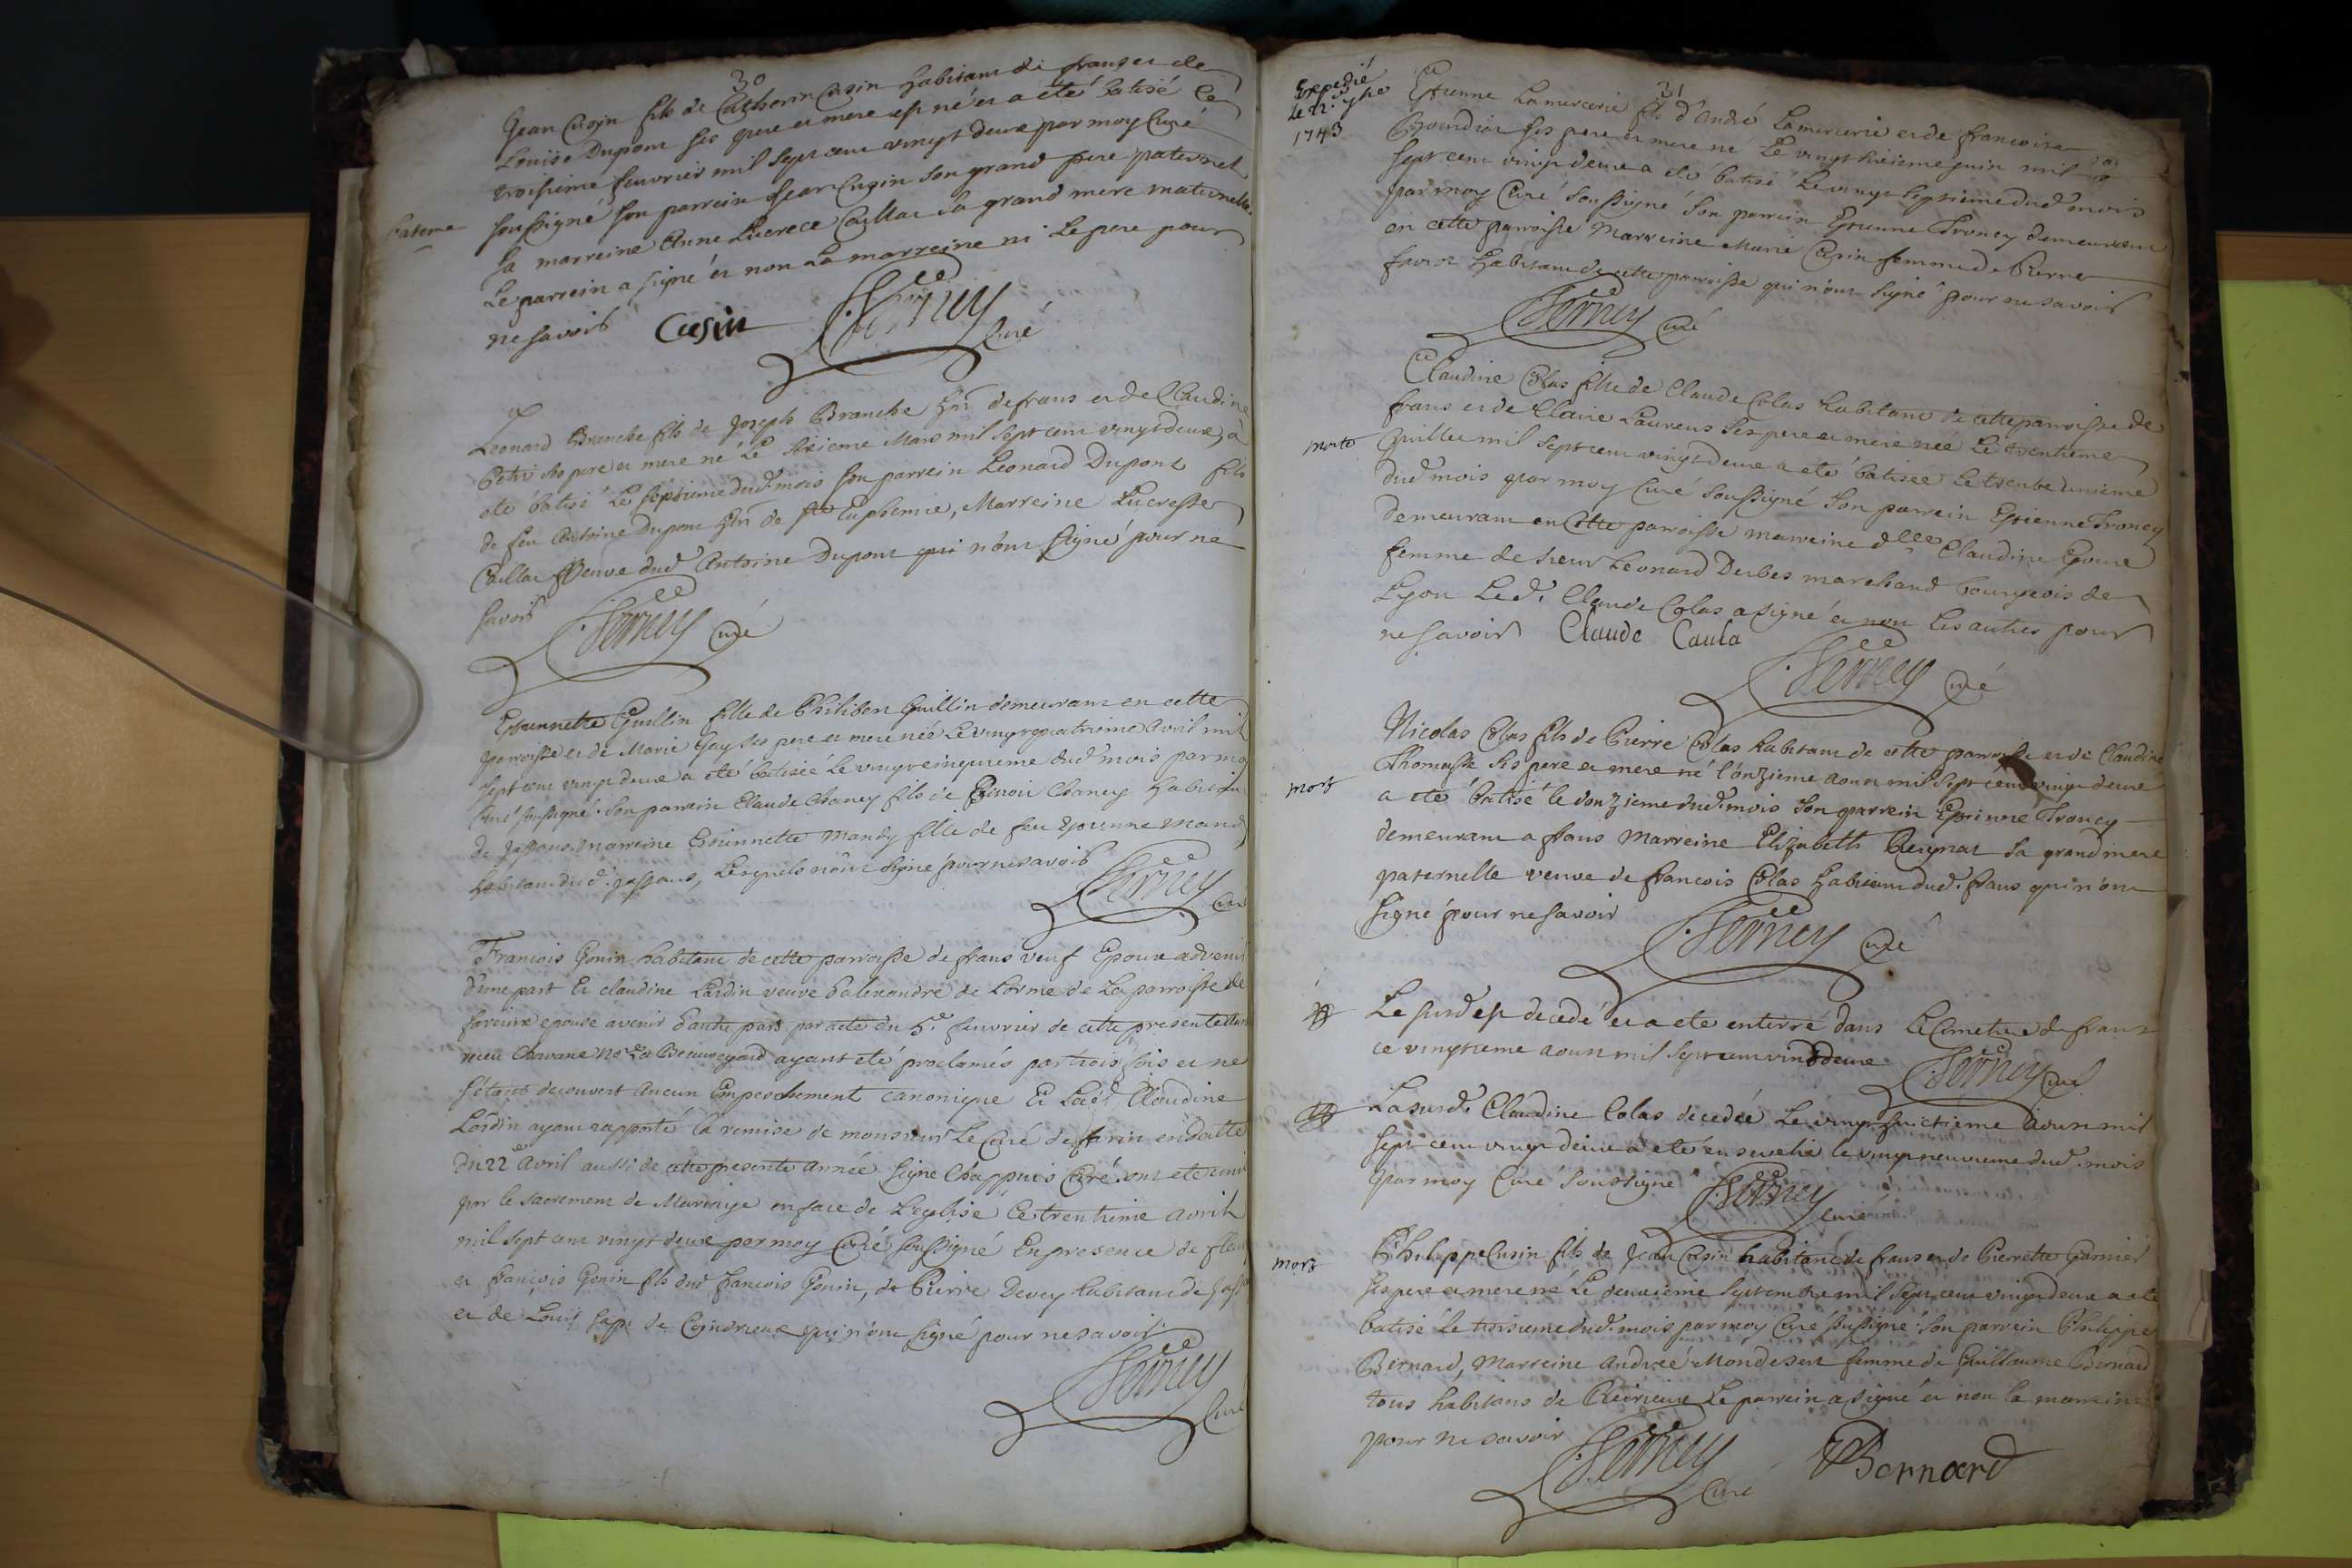 30
Jean Cusin fils de Catherin Cusin habitant de frans et de
Louise Dupont ses pere et mere est né et a eté batisé le
troisieme feuvrier mil sept cent vingt deux par moy Curé
soussigné son parrein Jean Cusin son grand pere paternel
bateme
sa marreine Anne Lucrece Caillat sa grand mere maternelle
Le parrein a signé et non La marreine ni Le pere pour
ne savoir Cusin
Curé
Leonard Branche fils de Joseph Branche hnt de frans et de Claudine
Petri ses pere et mere né Le sixieme Mars mil sept cent vingt deux, a
eté batisé Le septieme dud. mois son parrein Leonard Dupont fils
de feu Antoine Dupont hnt de ste Euphemie, Marreine Lucresse
Caillat Veuve dud. Antoine Dupont qui n'ont signé pour ne
savoir Curé
Estiennette Guillin fille de Philibert Guillin demeurant en cette
parroisse et de Marie Gay ses pere et mere née Le vingt quatrieme avril mil
sept cent vingt deux a eté batiseé Le vingt cinquieme dud. mois par moy
Curé soussigné. son parrein Claude Chaney fils de Benoit Chaney habitant
de Jassans, marreine Estiennette Mandy fille de feu Estienne Mandy
habitant dud. Jassans, Lesquels n'ont signé pour ne savoir
Curé
Francois Gonin habitant de cette parroisse de frans veuf Epoux advenir
d'une part Et claudine Lardin veuve d'alexandre de Lorme de La parroisse de
fareins epouse avenir d'autre part par acte du 5.e feuvrier de cette presente
receu Charvane no.re a Beauregard ayant eté proclamés par trois fois et ne
s'etant decouvert aucun Empeschement canonique Et Lad. Claudine
Lardin ayant rapporté la remise de monsieur Le Curé de farin en datte
du 22 avril aussi de cette presente année signé Chappuis Curé. ont eté uni
par le sacrement de Mariage en face de L'eglise Le trentieme avril
mil sept cent vingt deux par moy Curé soussigné En presence de
et françois Gonin fils dud. francois Gonin, de Pierre Devey habitant de
et de Louis Sape de Coindrieux qui n'ont signé pour ne savoir.
Curé
31
Expedié
le
1743
Estienne Lamercerie fils d'André Lamercerie et de francoise
ses pere et mere né Le vingt sixieme juin mil
sept cent vingt deux a eté batisé Le vingt septieme dud. mois
par moy Curé soussigné son parrein Estienne Troncy demeurant
en cette parroisse Marreine Marie Cusin femme de Pierre
favrot habitant de cette parroisse qui n'ont signé pour ne savoir
Curé
Claudine Colas fille de Claude Colas habitant de cette parroisse de
frans et de Claire Laurens ses pere et mere née Le trentieme
morte
Juillet mil sept cent vingt deux a eté batiseé Le trente unieme
dud. mois par moy Curé soussigné son parrein Estienne Troncy
demeurant en cette parroisse marreine dlle Claudine
femme de sieur Leonard Derbes marchand bourgeois de
Lyon Led. Claude Colas a signé et non Les autres pour
ne savoir Claude Caula
Curé
Nicolas Colas fils de Pierre Colas habitant de cette parroisse et de Claudine
Thomasse ses pere et mere né l'onzieme aoust mil sept cent vingt deux
mort
a eté batisé le douzieme dud. mois son parrein Estienne Troncy
demeurant a frans Marreine Elizabeth Reignat sa grand mere
paternelle veuve de francois Colas habitant dud. frans qui n'ont
signé pour ne savoir
Curé
Le susd. est decedé et a eté enterré dans Le Cimetiere de frans
ce vingtieme aoust mil sept cent vingt deux
Curé
La susd. Claudine Colas decedée Le vingt huictieme aoust mil
sept cent vingt deux a eté ensevelie le vingt neuvieme dud. mois
par moy Curé soussigné
Curé
mort
Philippe Cusin fils de Jean Cusin habitant de frans et de Pierrette Garnier
ses pere et mere né Le deuxieme septembre mil sept cent vingt deux a eté
batisé Le troisieme dud. mois par moy Curé soussigné. son parrein Philippe
Bernard, Marreine Andreé Mondesert femme de Guillaume Bernard
tous habitans de Reirieux Le parrein a signé et non la marreine
pour ne savoir
Curé
Bernard